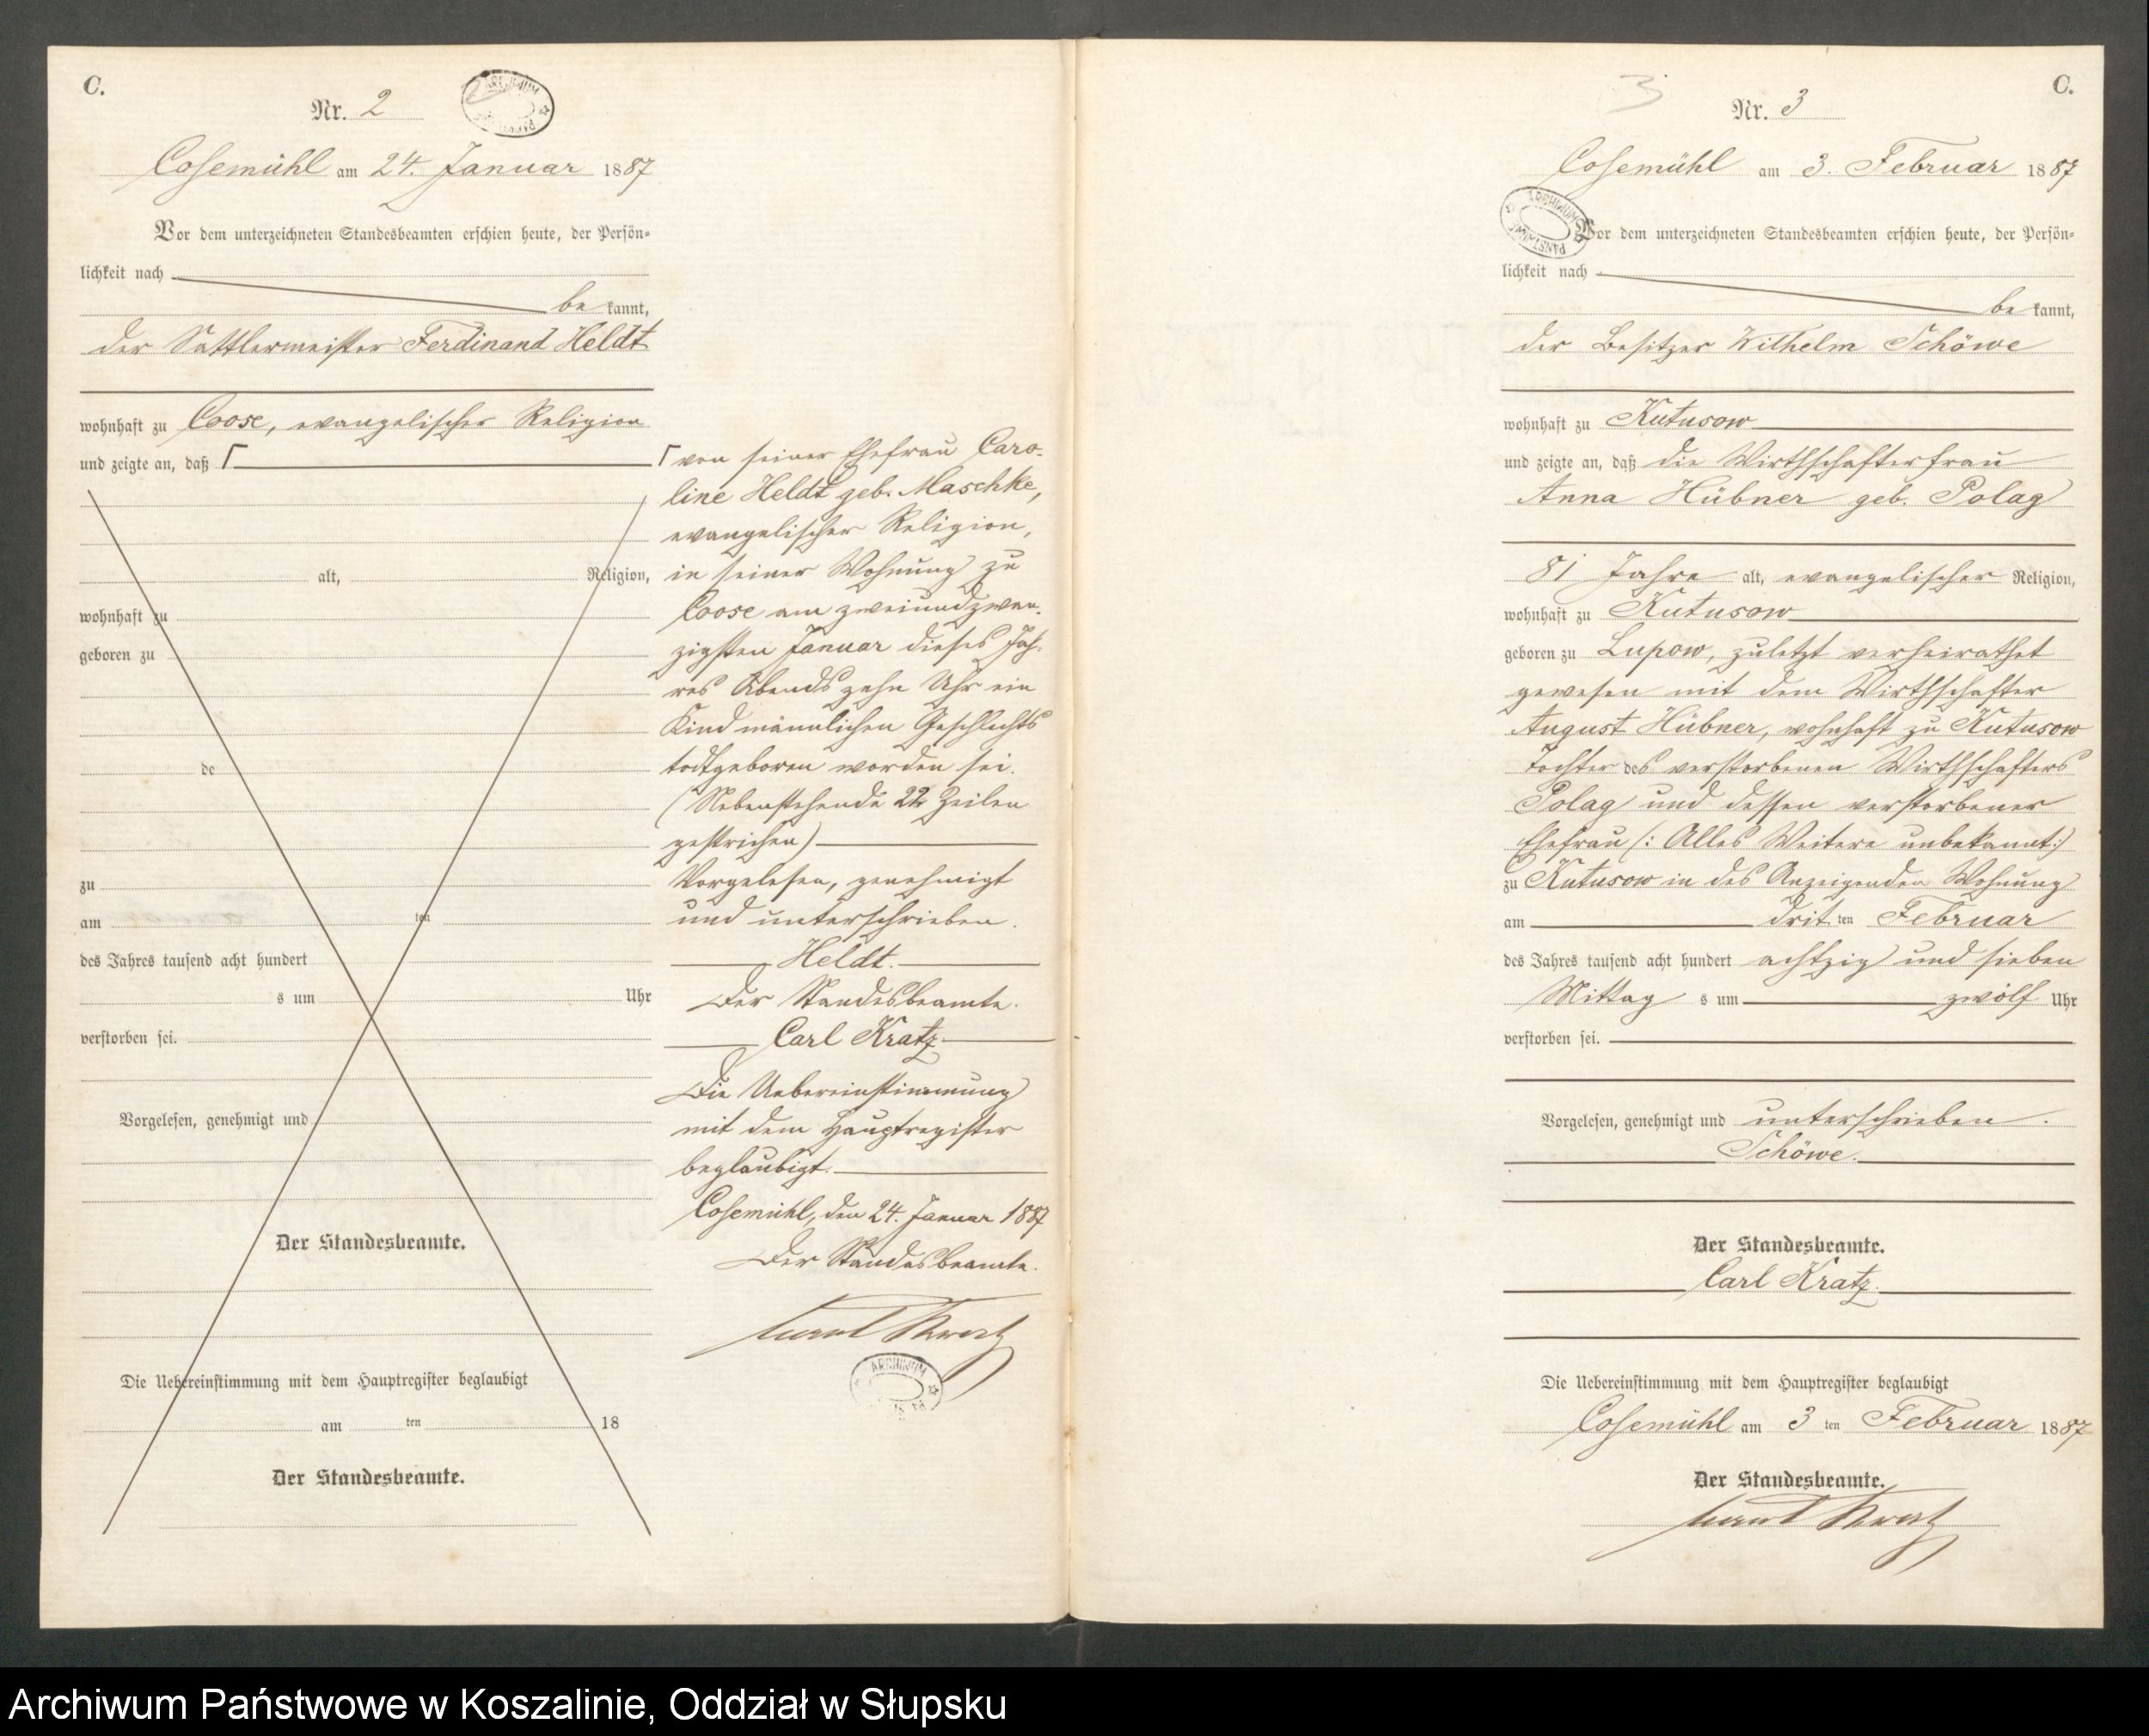 C.
Nr. 2
ARCHIWUM
Cosemühl am 24. Januar 1887
Vor dem unterzeichneten Standesbeamten erschien heute, der Persön-
lichkeit nach
be kannt,
der Sattlermeister Ferdinand Heldt
wohnhaft zu Coose, evangelischer Religion
und zeigte an, daß
alt, Religion,
wohnhaft zu
geboren zu
de
zu
am ten
des Jahres tausend acht hundert
s um Uhr
verstorben sei.
Vorgelesen, genehmigt und
Der Standesbeamte.
Die Uebereinstimmung mit dem Hauptregister beglaubigt
am ten 18
Der Standesbeamte.
von seiner Ehefrau Caro-
line Heldt geb. Maschke,
evangelischer Religion,
in seiner Wohnung zu
Coose am zweiundzwan-
zigsten Januar dieses Jah-
res Abends zehn Uhr ein
Kind männlichen Geschlechts
todtgeboren worden sei.
(Nebenstehende 22 Zeilen
gestrichen)
Vorgelesen, genehmigt
und unterschrieben.
Heldt.
Der Standesbeamte.
Carl Kratz
Die Uebereinstimmung
mit dem Hauptregister
beglaubigt.
Cosemühl, den 24. Januar 1887
Der Standesbeamte.
Carl Kratz
ARCHIWUM
3
C.
Nr. 3
Cosemühl am 3. Februar 1887
ARCHIWUM
Vor dem unterzeichneten Standesbeamten erschien heute, der Persön-
lichkeit nach
be kannt,
der Besitzer Wilhelm Schöwe
wohnhaft zu Kutusow
und zeigte an, daß die Wirthschafterfrau
Anna Hübner geb. Polag
81 Jahre alt, evangelischer Religion,
wohnhaft zu Kutusow
geboren zu Lupow, zuletzt verheirathet
gewesen mit dem Wirthschafter
August Hübner, wohnhaft zu Kutusow
Tochter des verstorbenen Wirthschafters
Polag und dessen verstorbener
Ehefrau (: Alles Weitere unbekannt:)
zu Kutusow in des Anzeigenden Wohnung
am drit ten Februar
des Jahres tausend acht hundert achtzig und sieben
Mittag s um zwölf Uhr
verstorben sei.
Vorgelesen, genehmigt und unterschrieben.
Schöwe.
Der Standesbeamte.
Carl Kratz.
Die Uebereinstimmung mit dem Hauptregister beglaubigt
Cosemühl am 3 ten Februar 1887
Der Standesbeamte.
Carl Kratz
Archiwum Państwowe w Koszalinie, Oddział w Słupsku